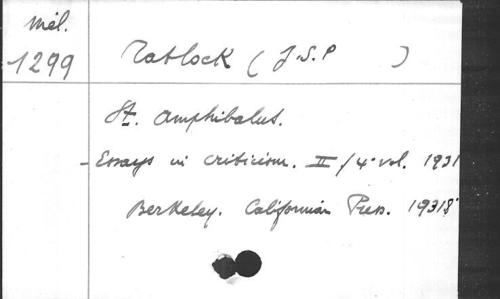 Mél.
1299
Tatlock (J.S.P )
St. Amphibalus.
- Essays in criticism. II / 4° vol. 1931
Berkeley. Californian Press. 1931 8°